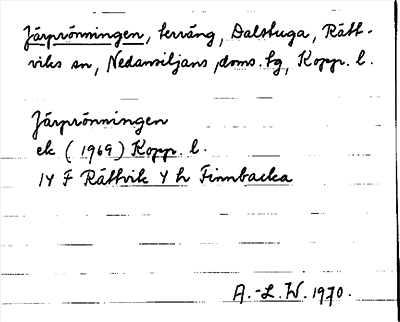 Järprönningen, terräng, Dalstuga, Rätt-
viks sn, Nedansiljans doms. tg, Kopp. l.
Järprönningen
ek (1969) Kopp. l.
14 F Rättvik 4 h Finnbacka
A.-L.W. 1970.